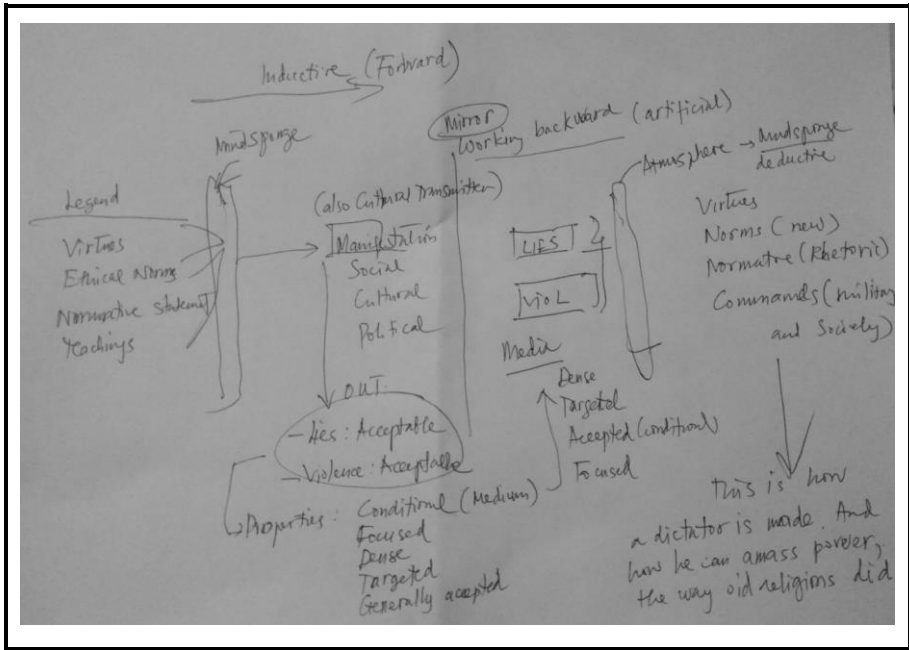 Inductive (Forward)
Mindsponge
Legend
Virtues
Ethical Norms
Normative statement
Teachings
(also Cultural Transmitter)
Manifestation
Social
Cultural
Political
OUT
- Lies: Acceptable
- Violence: Acceptable
Properties: Conditional (Medium)
Focused
Dense
Targeted
Generally accepted
Mirror
Working backward (artificial)
LIES
VioL
Media
Dense
Targeted
Accepted (conditional)
Focused
Atmosphere → Mindsponge
deductive
Virtues
Norms (new)
Normative (Rhetoric)
Commands (military
and Society)
This is how
a dictator is made. And
how he can amass power,
the way old religions did